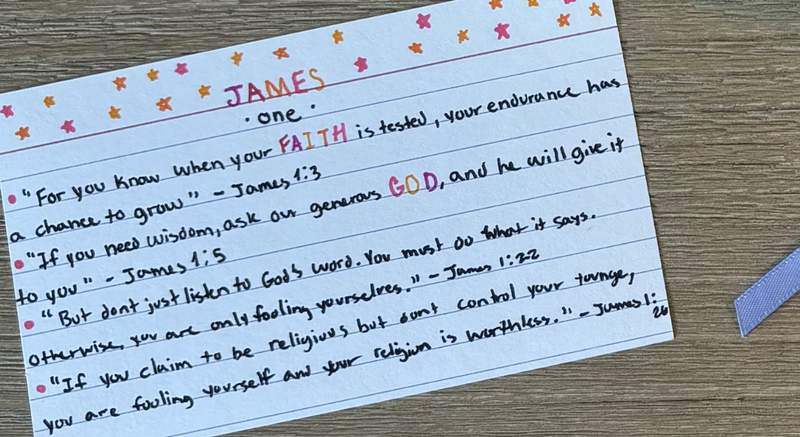 JAMES
· one ·
• "For you know when your FAITH is tested, your endurance has
a chance to grow" - James 1:3
• "If you need wisdom, ask our generous GOD, and he will give it
to you" - James 1:5
• "But dont just listen to God's word. You must do what it says.
otherwise, you are only fooling yourselves." - James 1:22
• "If you claim to be religious but dont control your tounge,
you are fooling yourself and your religion is worthless." - James 1:
26